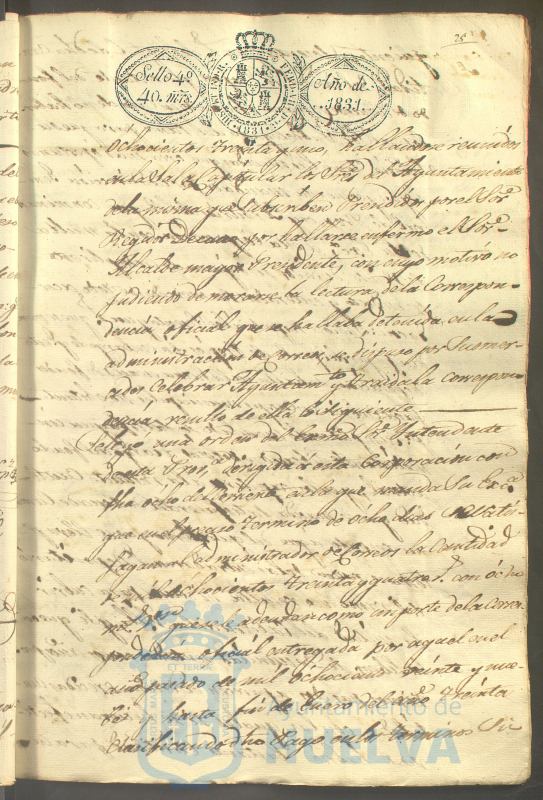 25
Sello 4º
40. mrs.
Año de
1831.
ochocientos treinta y uno, hallandose reunidos
en la Sala Capitular los Sres. del Ayuntamiento
de la misma que subscriben Presididos por el Sor.
Regidor Decano por hallarse enfermo el Sor.
Alcalde mayor Presidente, con cuyo motivo no
pudiendo demorarse la lectura de la Correspon-
dencia oficial que se hallaba detenida en la
administracion de correos, se dispuso por Su mer-
ced celebrar Ayuntamto. y traida la correspon-
dencia resultó de ella lo siguiente
Se leyó una orden del Exmo. Sor. Intendente de
esta Prova. dirigida a esta Corporacion con
fha ocho del corriente en la que manda Su Exca.
que en el preciso termino de ocho dias
pagaran al administrador de Correos la cantidad
de ochocientos treinta y quatro rs. con ocho
mrs. que se le adeudan como importe de la corres-
pondencia oficial entregada por aquel en el
año pasado de mil ochocientos veinte y nue-
be y hasta fin de Enero del treinta
dho pago en los terminos
Ayuntamiento de
HUELVA